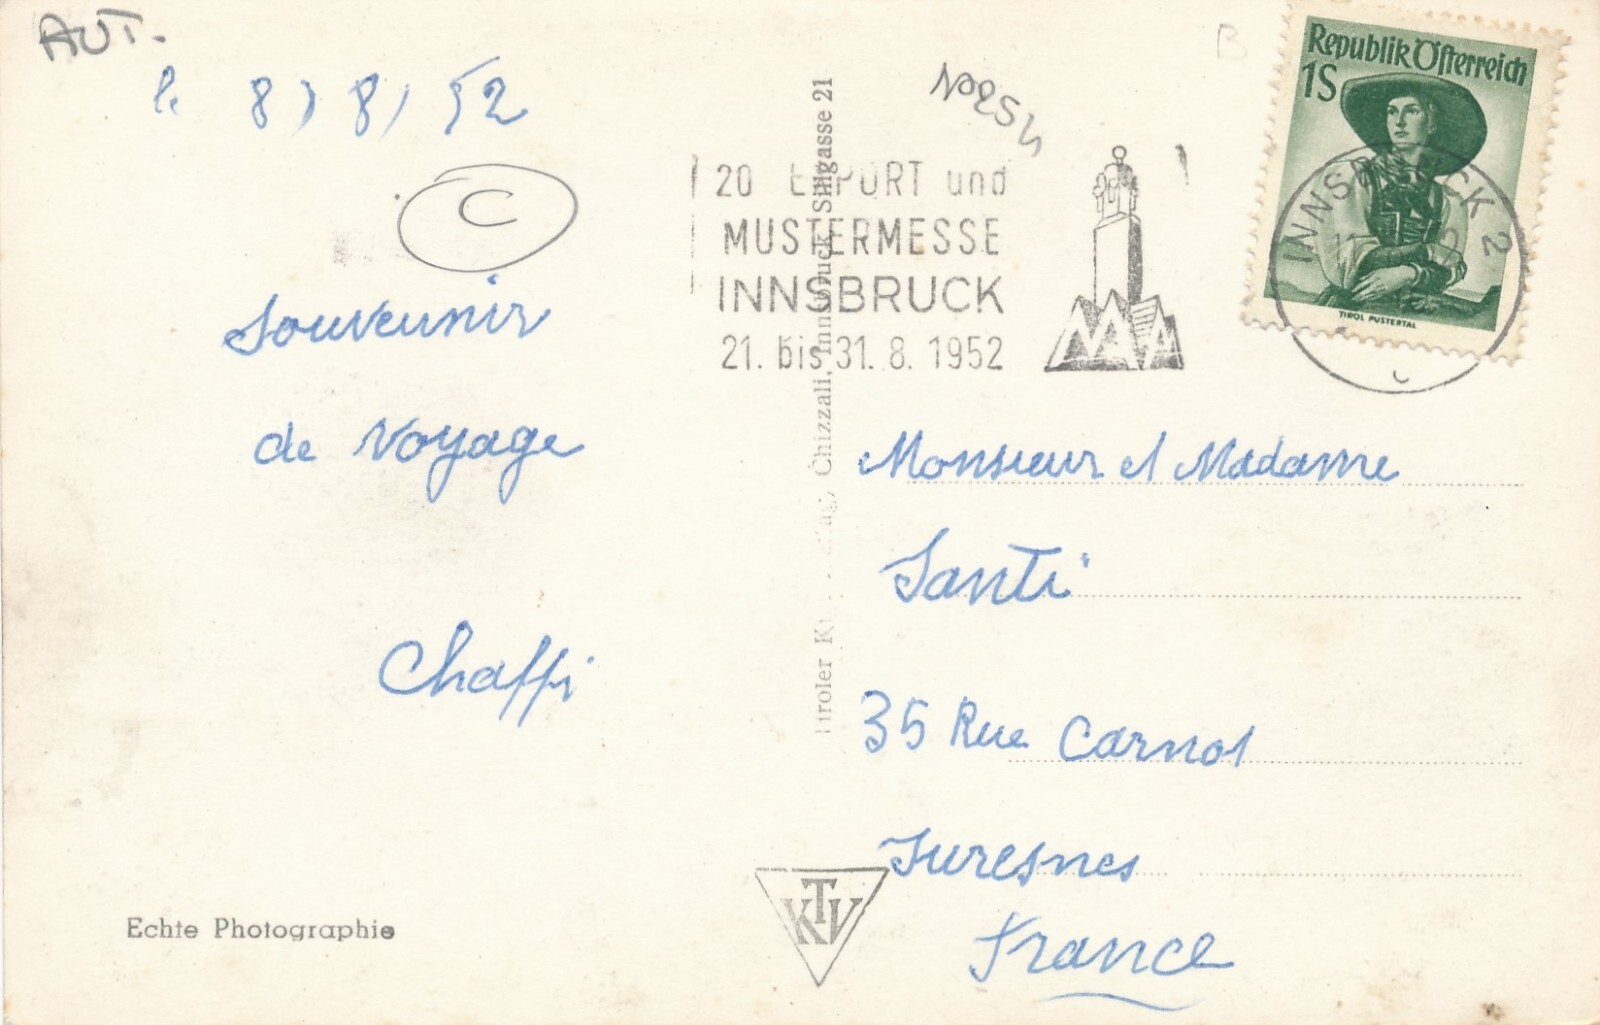 AUT.
le 8/8/52
C
Souvenir
de Voyage
Chaffi
Echte Photographie
Chizzali, Innsbruck, Sillgasse 21
KTV
20 EXPORT und
MUSTERMESSE
INNSBRUCK
21. bis 31. 8. 1952
B
Republik Österreich
1S
TIROL PUSTERTAL
INNSBRUCK 2
Monsieur et Madame
Santi
35 Rue Carnot
Suresnes
France